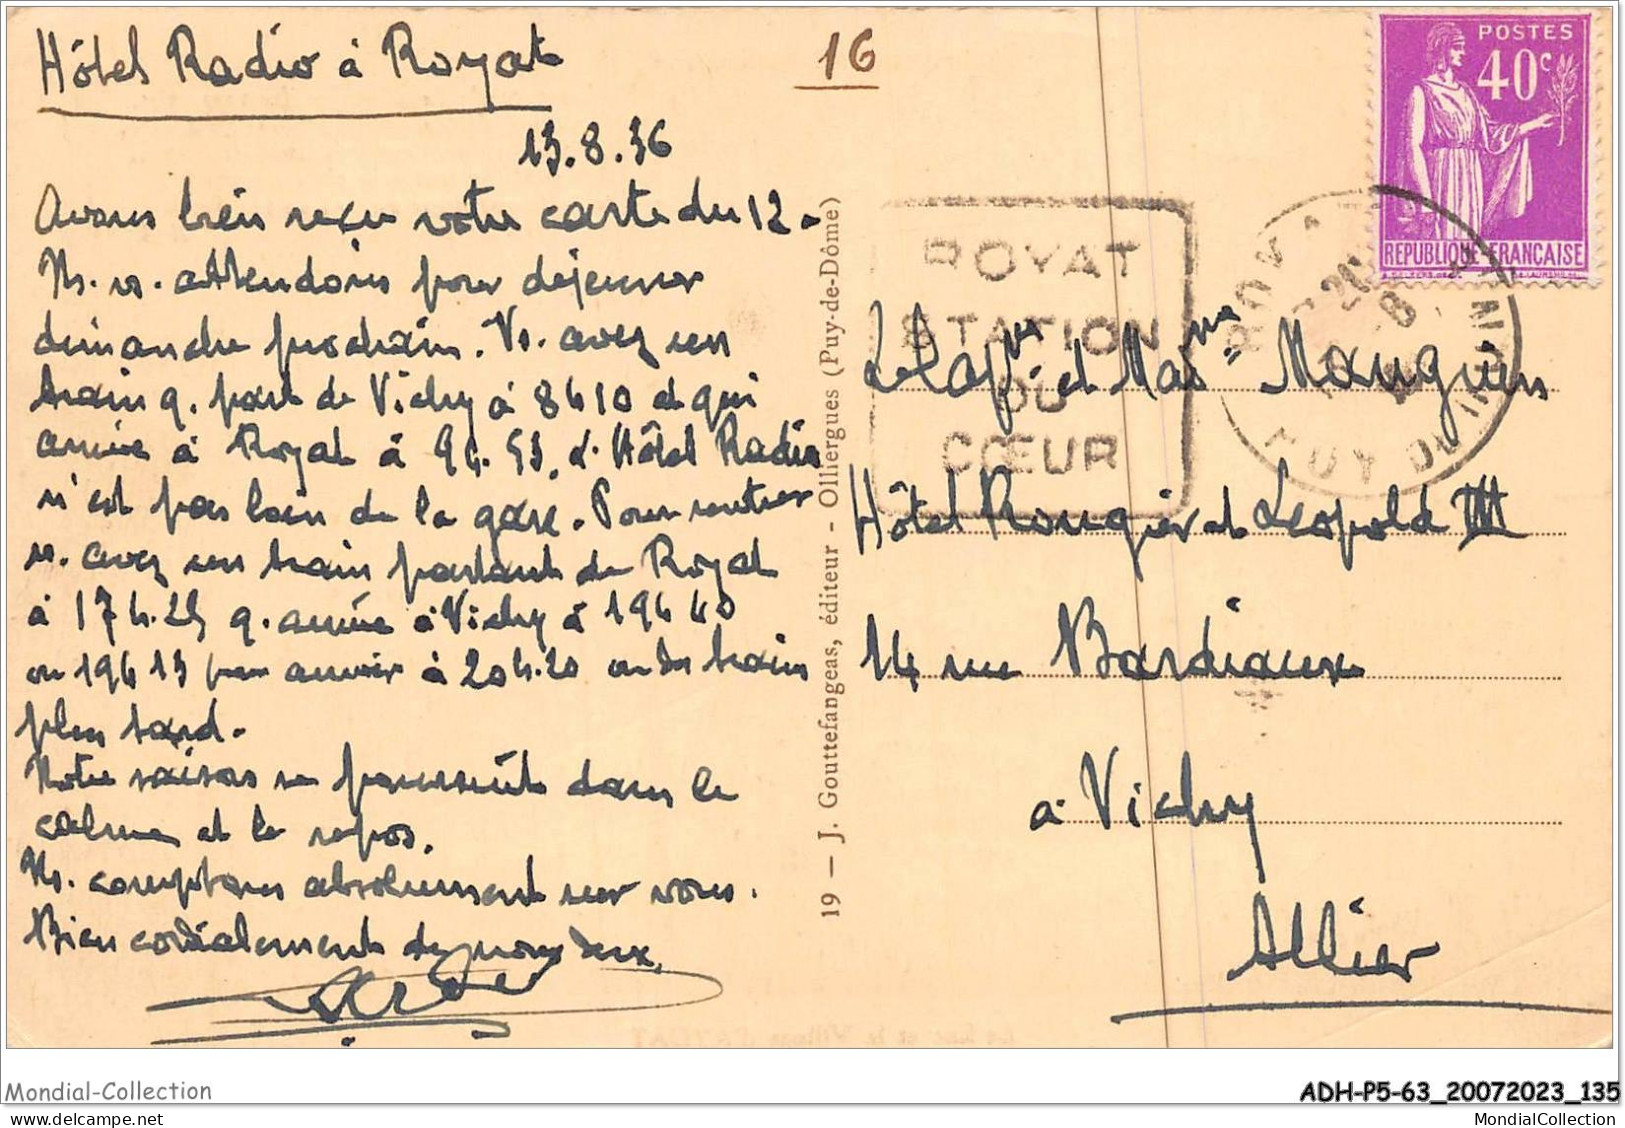 Hôtel Radio à Royat
13.8.36
Avons bien reçu votre carte du 12 -
Ns. vs. attendons pour déjeuner
dimanche prochain. Vs. avez un
train q. part de Vichy à 8h10 et qui
arrive à Royat à 9h.53. L'Hôtel Radio
n'est pas loin de la gare. Pour rentrer
vs. avez un train partant de Royat
à 17h.25 q. arrive à Vichy à 19h40
ou 19h13 pour arriver à 20h.20 ou un train
plus tard.
Notre saison se poursuit dans le
calme et le repos.
Ns. comptons absolument sur vous.
Bien cordialement de nous deux.
16
19 — J. Gouttefangeas, éditeur - Olliergues (Puy-de-Dôme)
ROYAT
STATION
DU
CŒUR
POSTES
40c
REPUBLIQUE FRANÇAISE
ROYAT
PUY DE DOME
et Mme Manguin
Hôtel Rougier et Léopold III
14 rue Bardiaux
à Vichy
Allier
Mondial-Collection
ADH-P5-63_20072023_135
MondialCollection